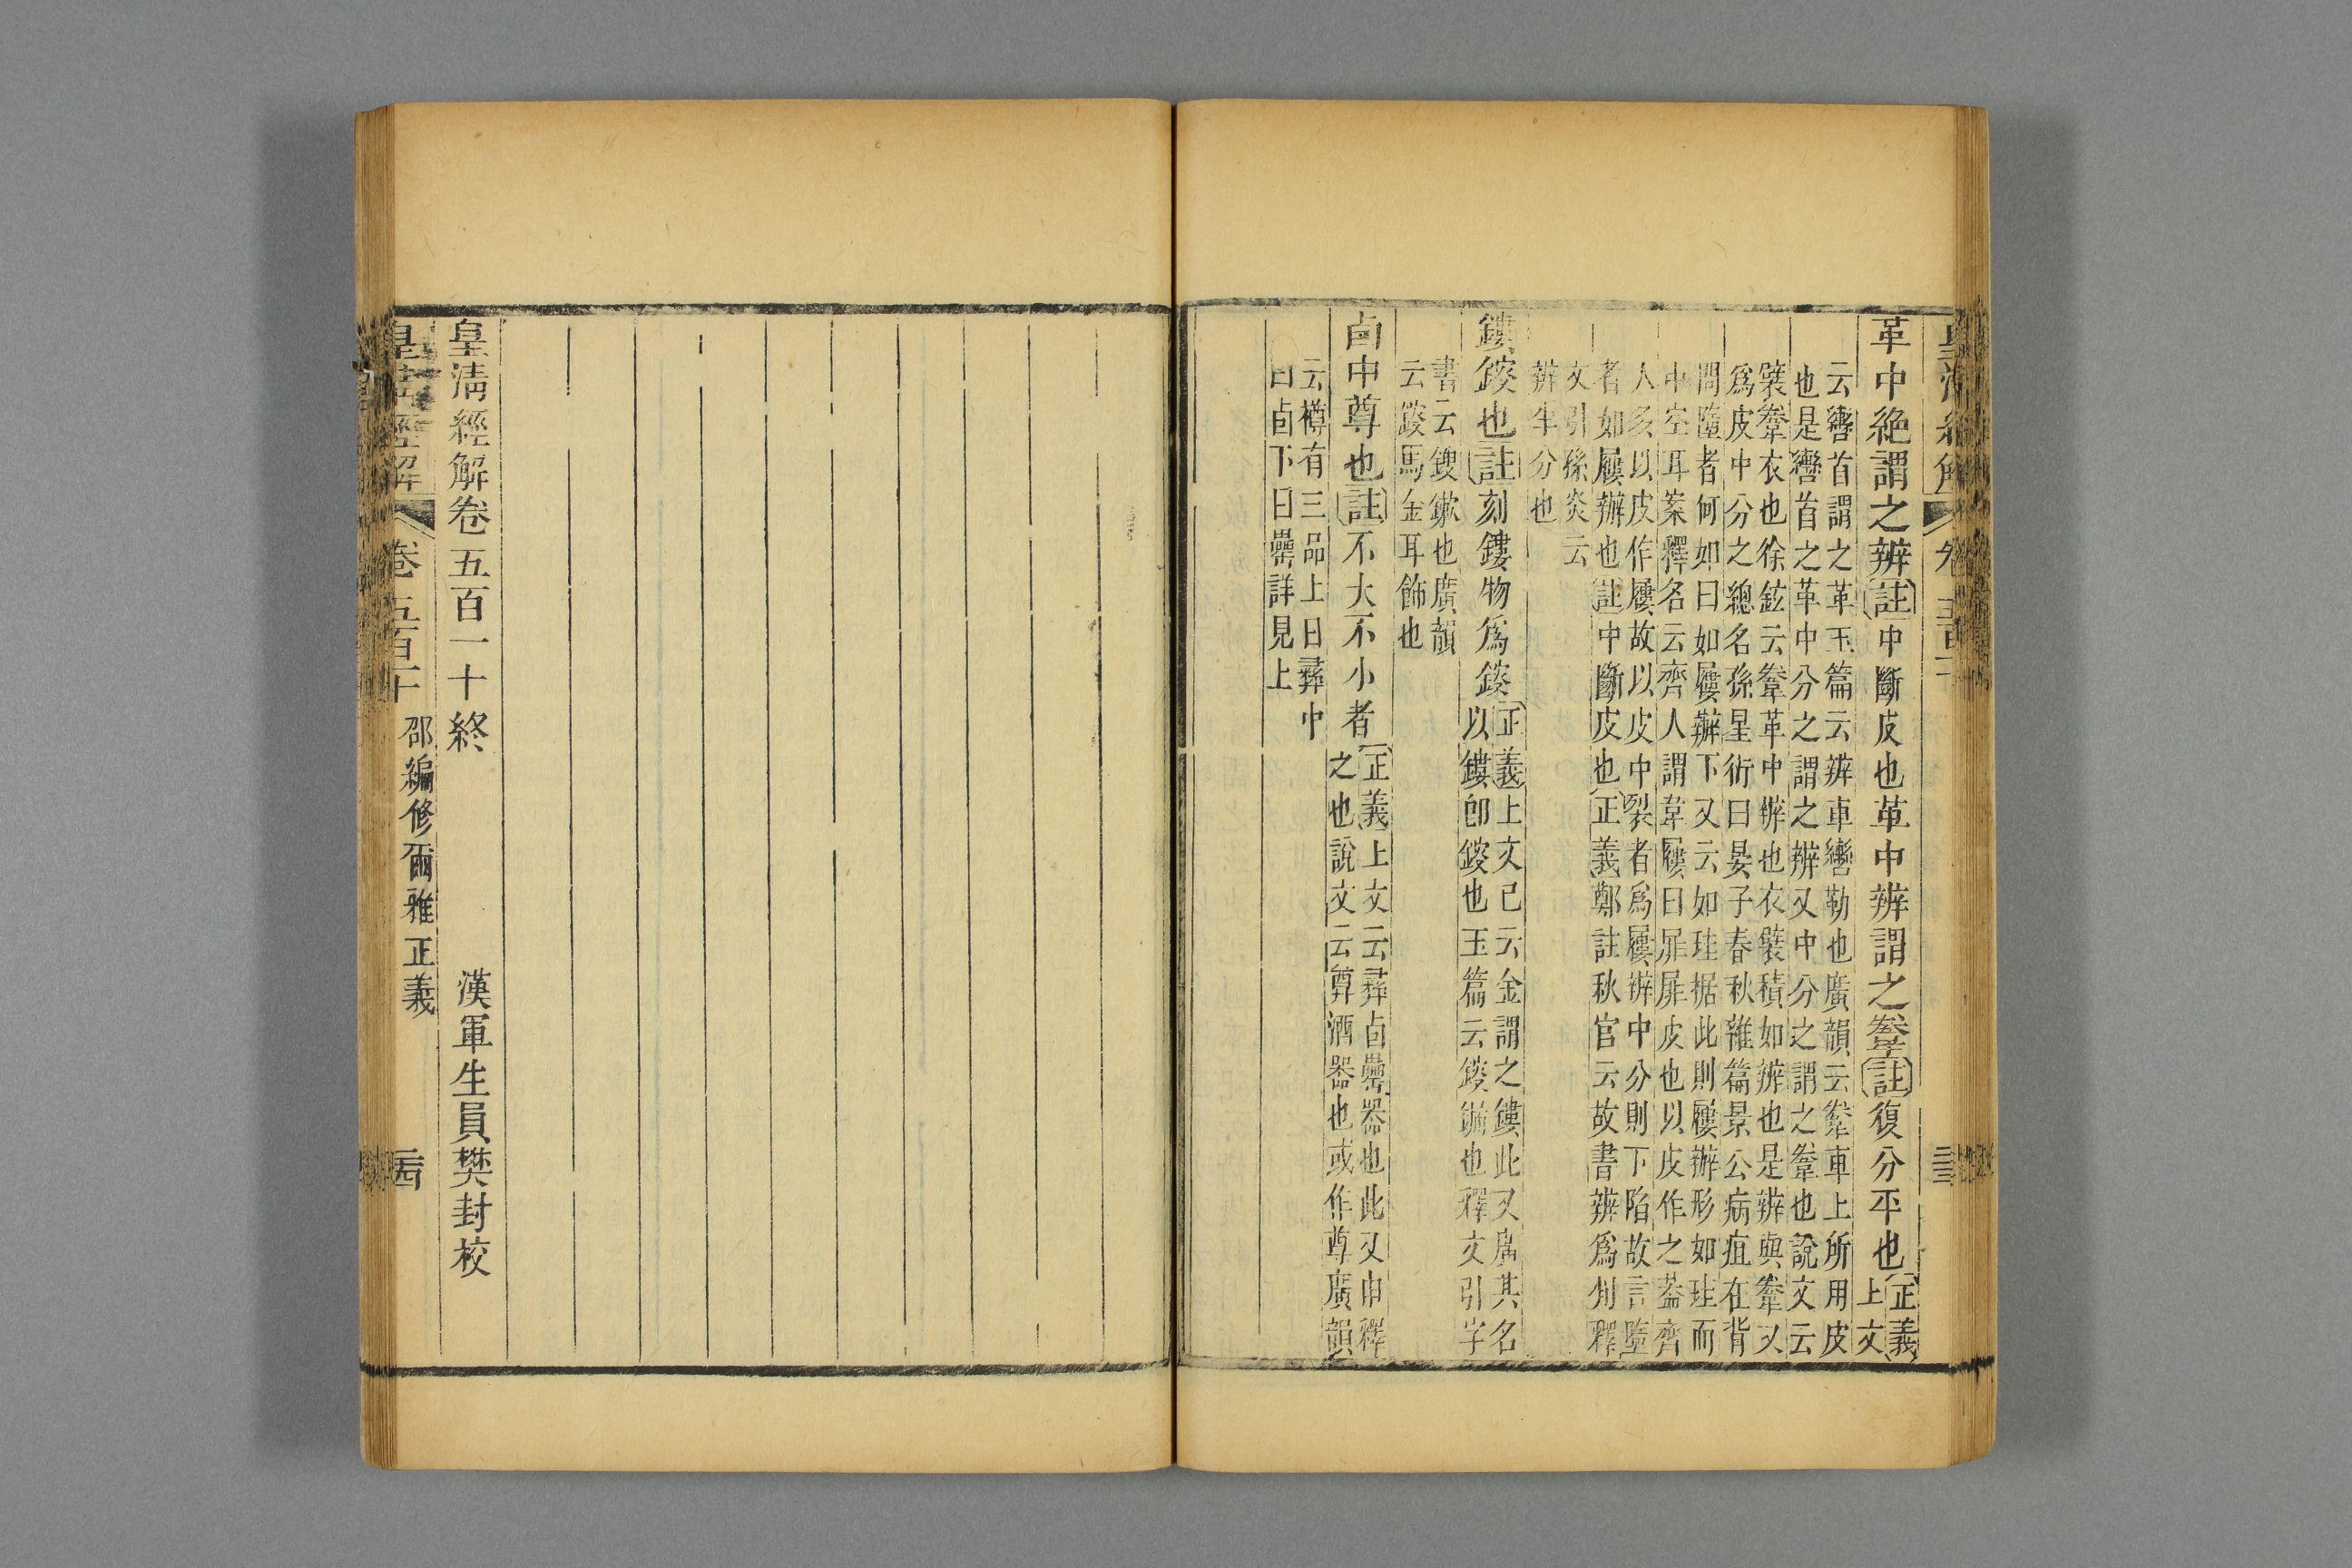 革中絕謂之辨註中斷皮也革中辨謂之韏註復分平也正義上文
云轡首謂之革玉篇云辨車轡勒也廣韻云韏車上所用皮
也是轡首之革中分之謂之辨又中分之謂之韏也說文云
襞韏衣也徐鉉云韏革中辨也衣襞積如辨也是辨與韏又
爲皮中分之總名孫星衍曰晏子春秋雜篇景公病疽在背
問墮者何如曰如屨辦下又云如珪据此則屨辦形如珪而
中空耳案釋名云齊人謂韋屨曰屝屝皮也以皮作之蓋齊
人多以皮作屨故以皮中裂者爲屨辨中分則下陷故言墮
者如屨辦也註中斷皮也正義鄭註秋官云故書辨爲釋
文引孫炎云
辨半分也
鏤鋑也註刻鏤物爲鋑正義上文已云金謂之鏤此又廣其名
以鏤卽鋑也玉篇云鋑也釋文引字
書云鎪鏉也廣韻
云鋑馬金耳飾也
卣中尊也註不大不小者正義上文云彝卣罍器也此又申釋
之也說文云尊酒器也或作尊廣韻
云樽有三品上曰彝中
曰卣下曰罍詳見上
皇清經解卷五百一十終 漢軍生員樊封校
皇清經解 卷五百一十 邵編修爾雅正義 三四